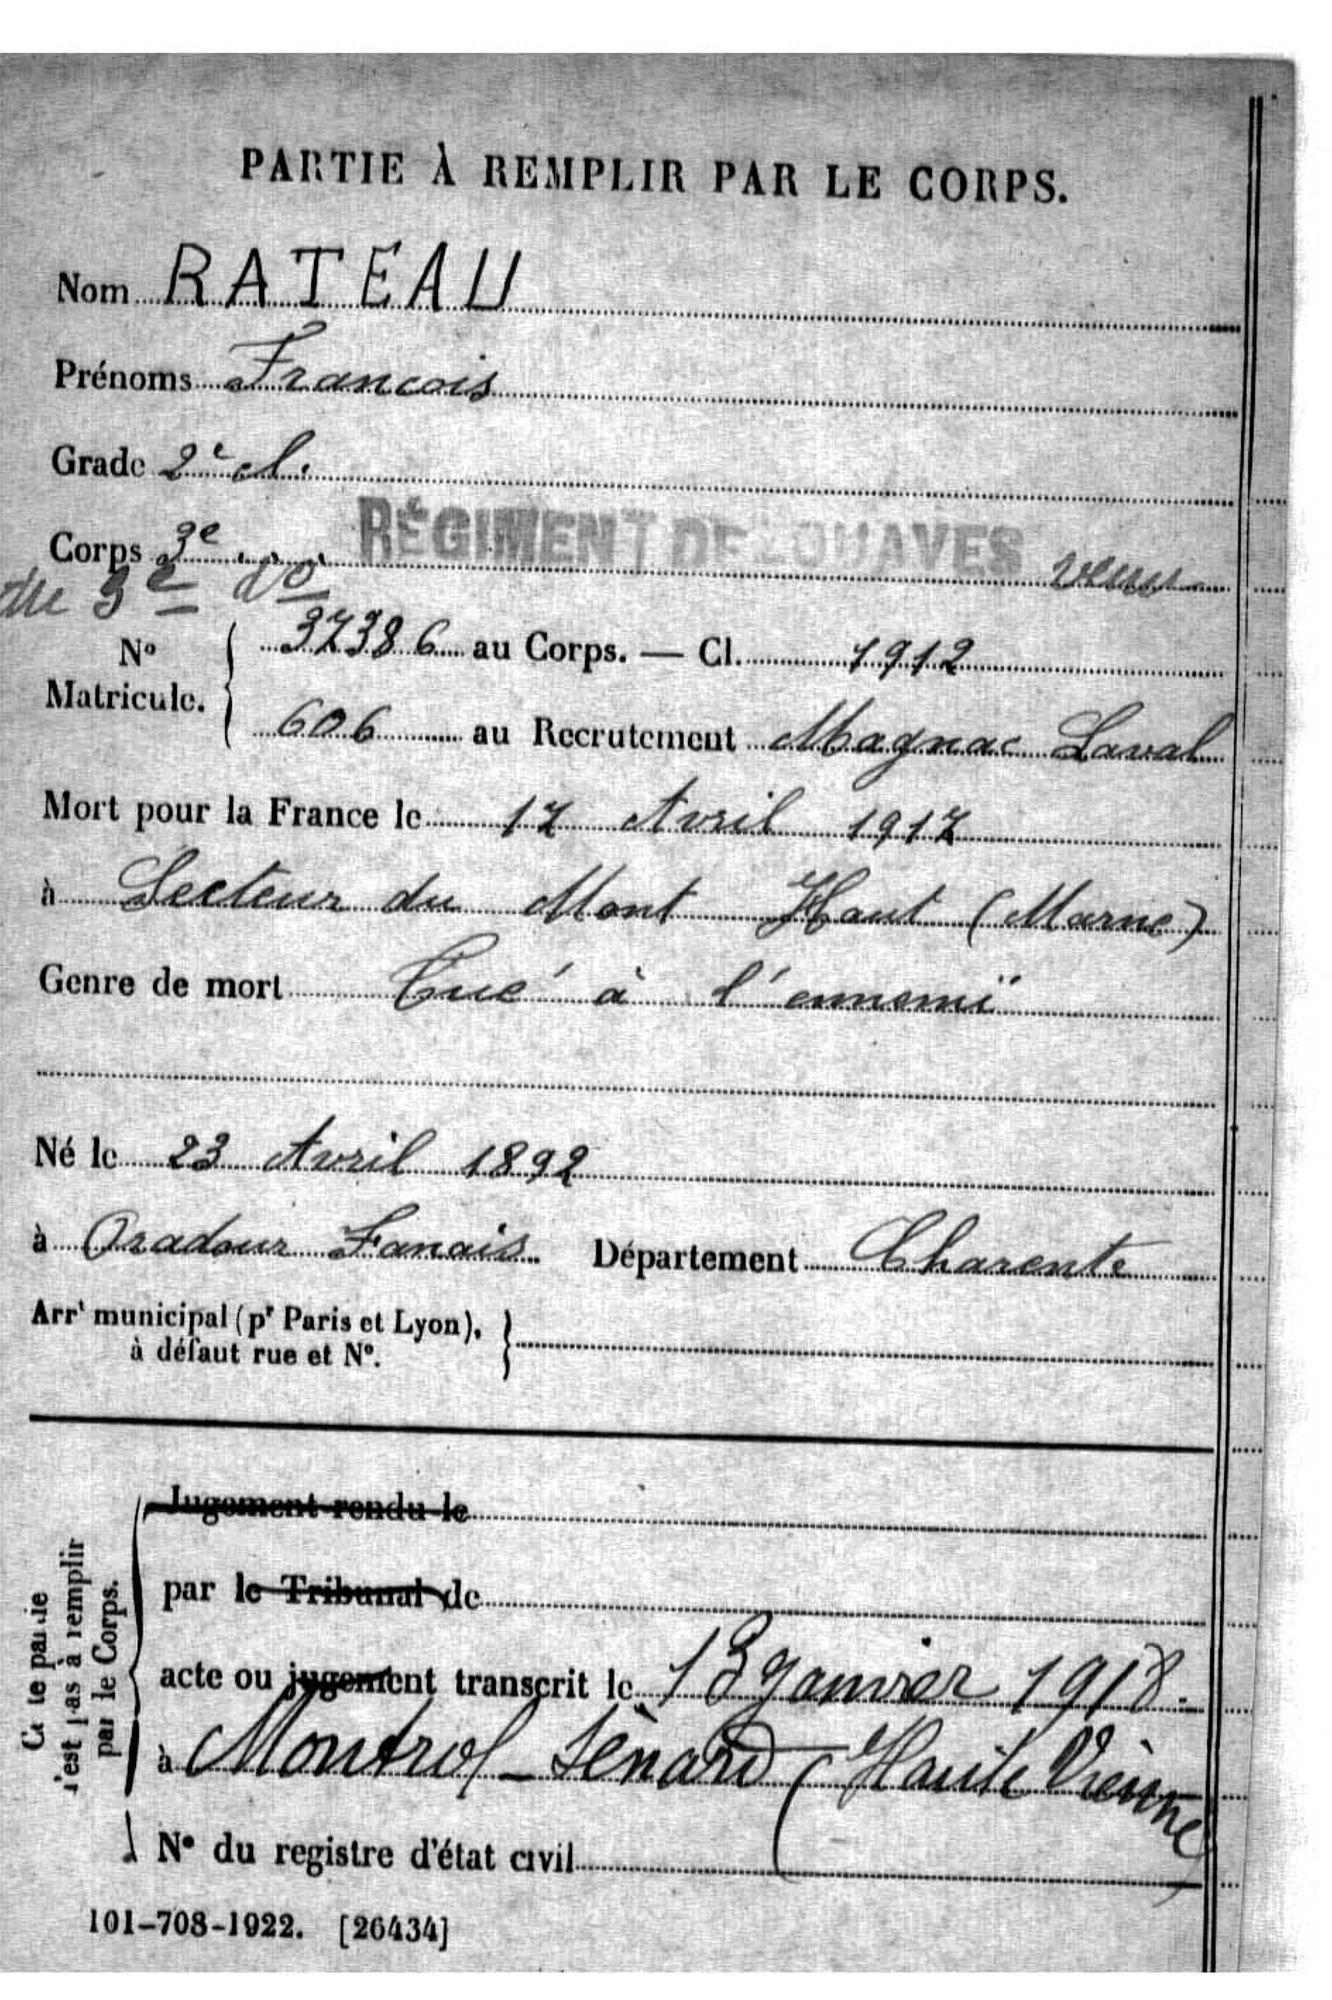 PARTIE À REMPLIR PAR LE CORPS.
Nom RATEAU
Prénoms Francois
Grade 2e cl.
Corps 3e RÉGIMENT DE ZOUAVES venu
du 3e do
No Matricule. 37386 au Corps. — Cl. 1912
606 au Recrutement Magnac Laval
Mort pour la France le 17 Avril 1917
à Secteur du Mont Haut (Marne)
Genre de mort Tué à l'ennemi
Né le 23 Avril 1892
à Oradour Fanais Département Charente
Arrt municipal (pr Paris et Lyon),
à défaut rue et No.
Cette partie
n'est pas à remplir
par le Corps.
Jugement rendu le
par le Tribunal de
acte ou jugement transcrit le 13 janvier 1918.
à Montrol-Sénard (Haute Vienne)
No du registre d'état civil
101-708-1922. [26434]